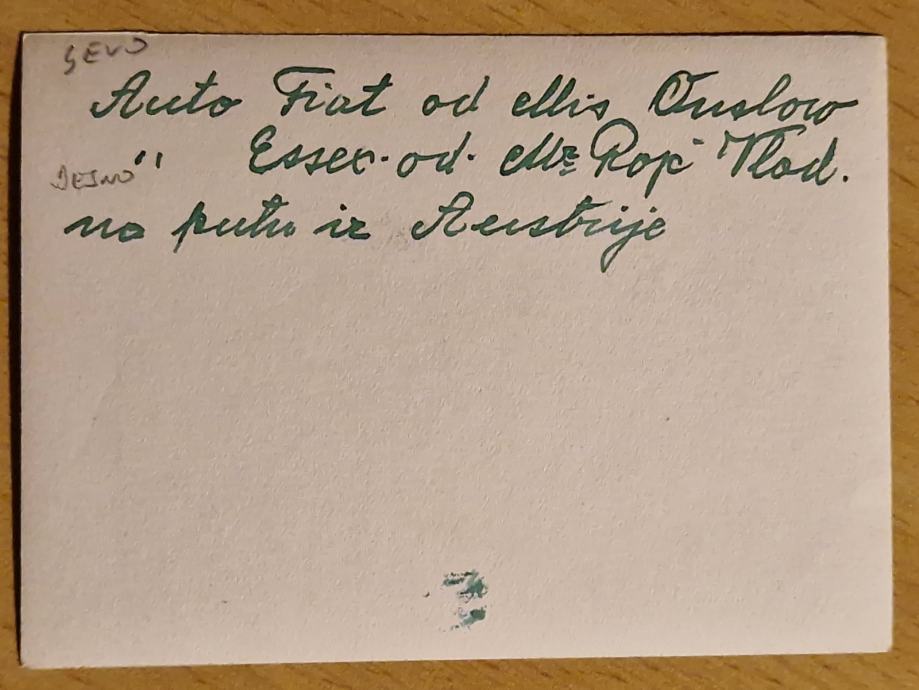 Auto Fiat od Mis Onslow
" Essex od Mr Rojc Vlad.
na putu iz Austrije